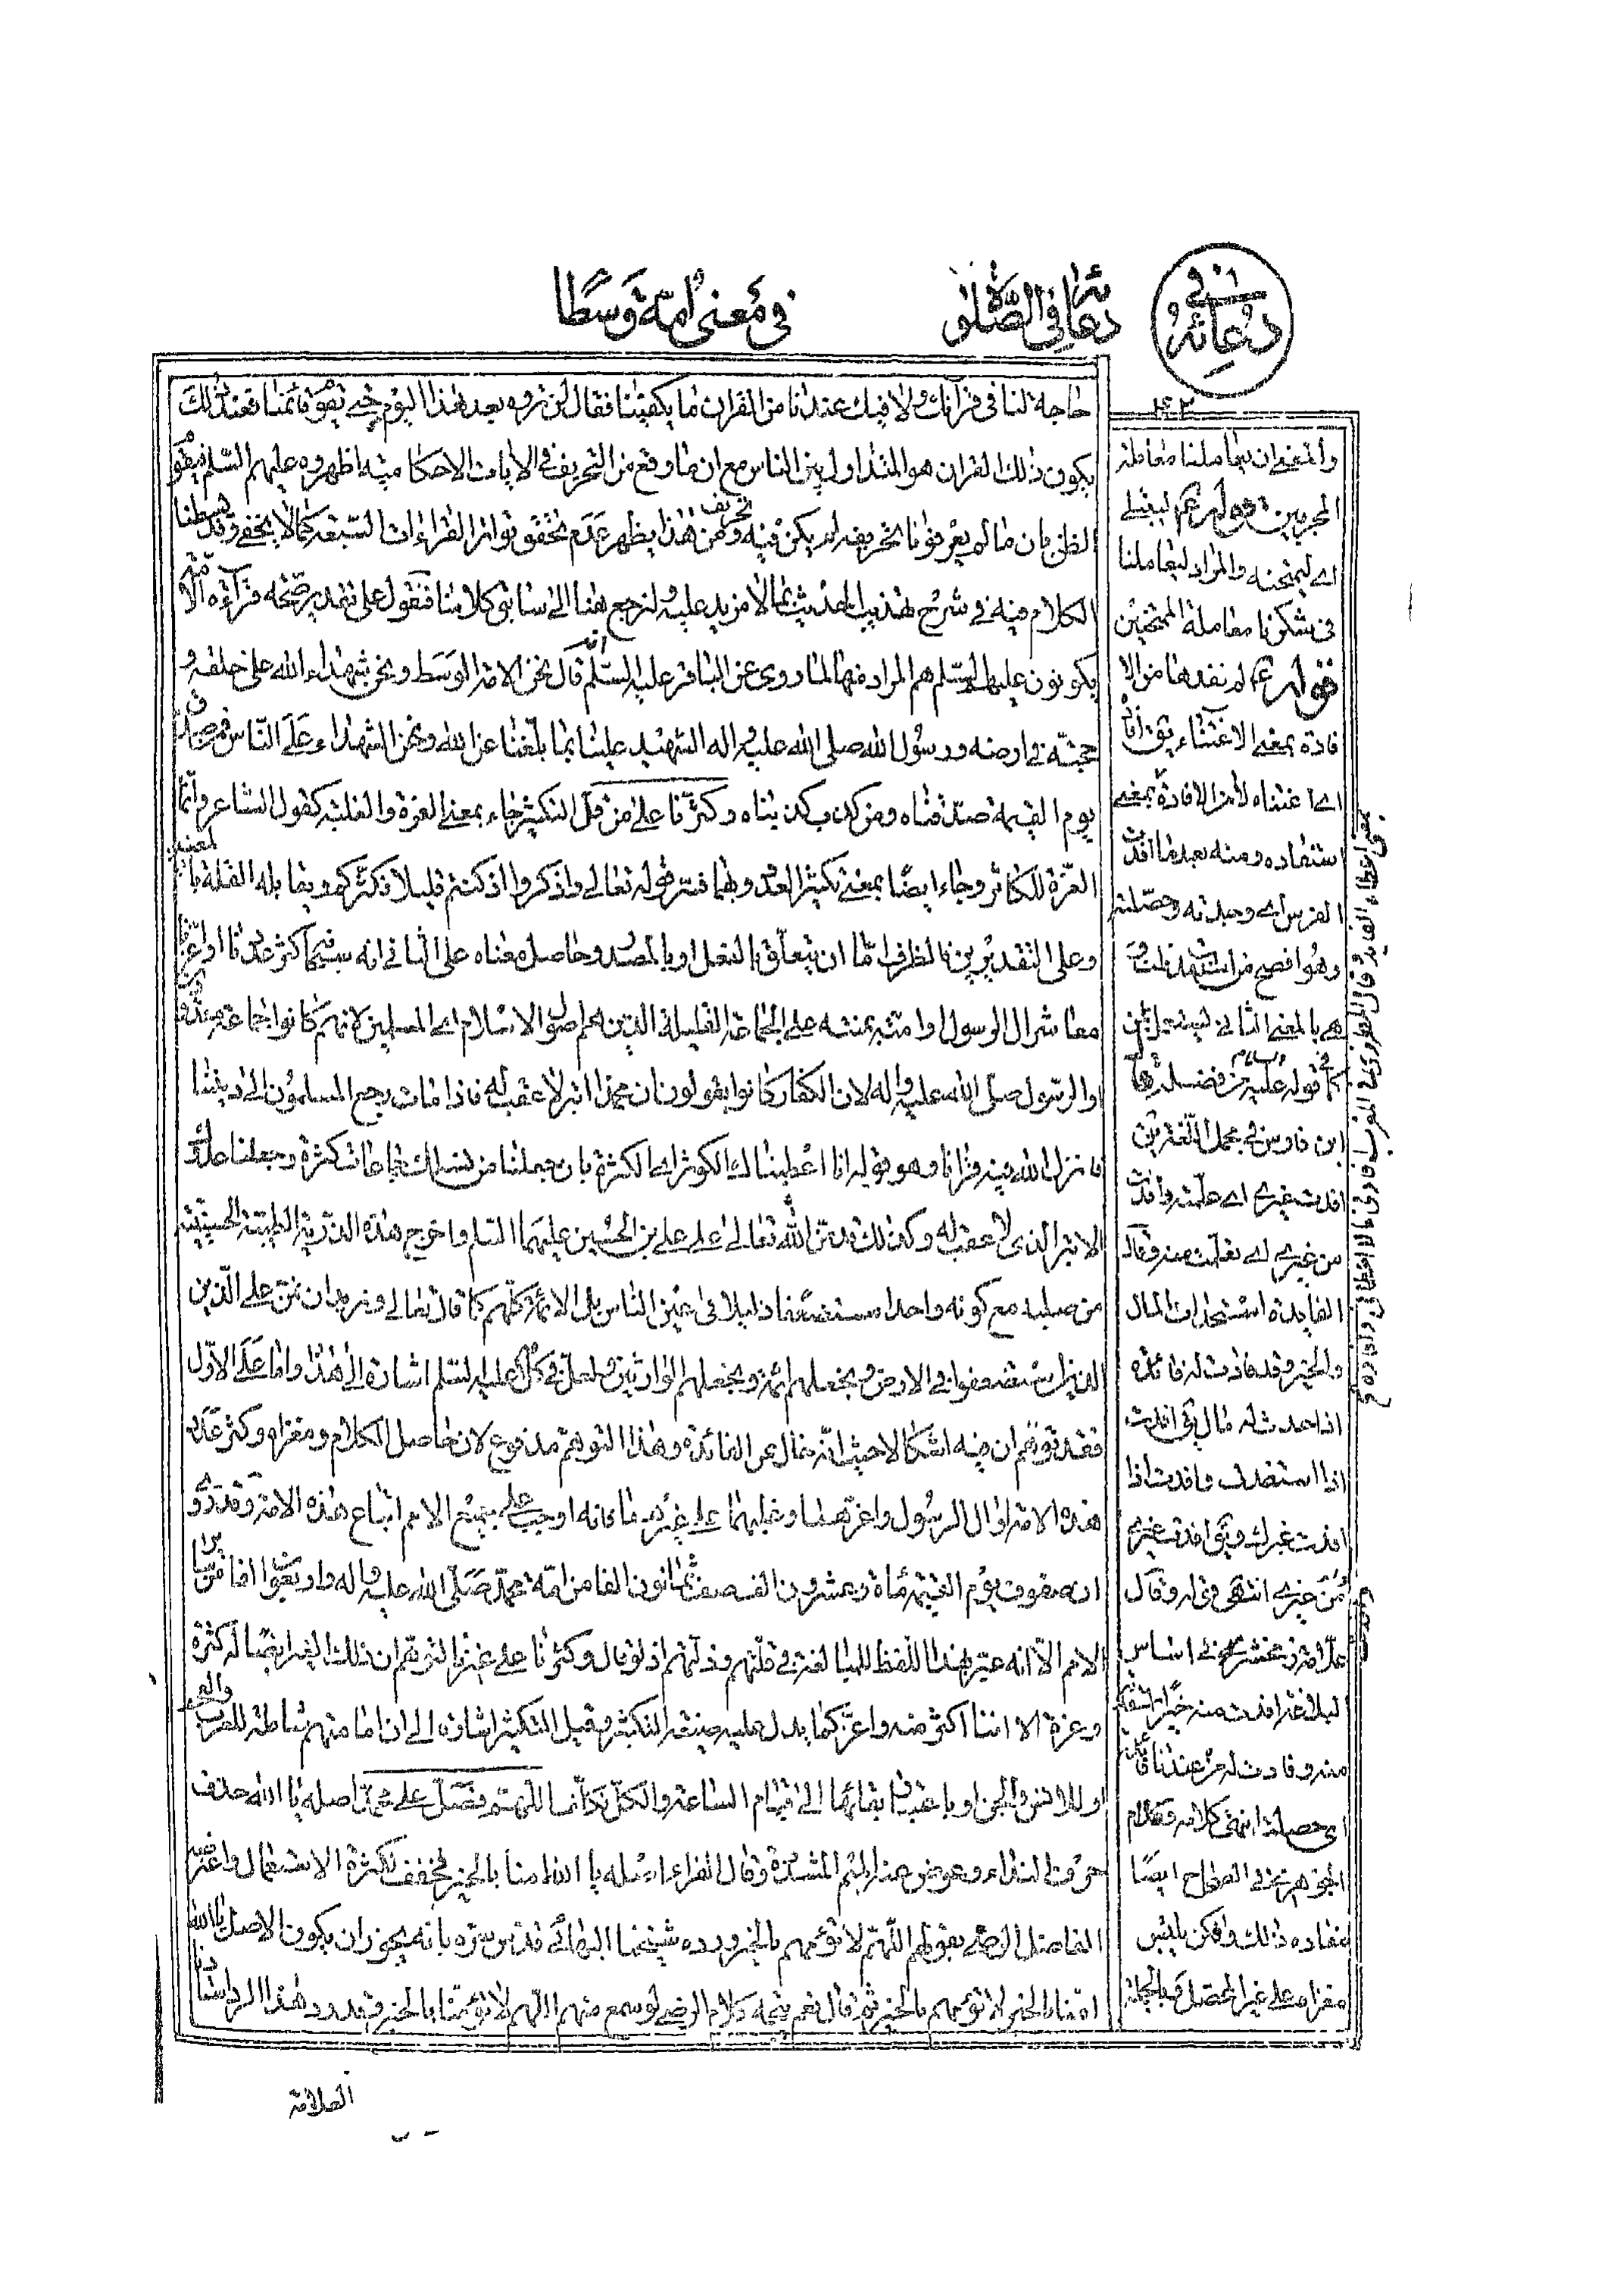 في دعائه
دعائه في الصلوة
في معنى امة وسطا
حاجة لنا في قرآنك ولا فيك عندنا من القران ما يكفينا فقال لن تروه بعد هذا اليوم حتى يقوم قائمنا فعند ذلك
يكون ذلك القران هو المتداول بين الناس مع ان ما وقع من التحريف في الايات الاحكامية اظهروه عليهم السلم فيقوم
الظن بان ما لم يعرفونا تحريفه لم يكن فيه تحريف ومن هذا يظهر عدم تحقق تواتر القراءات السبعة كما لا يخفى وقد بسطنا
الكلام فيه في شرح تهذيب الحديث بما لا مزيد عليه ولنرجع هنا الى سابق كلامنا فنقول على تقدير صحة قراءة الامة
يكونون عليهم السلم هم المراد منها لما روي عن الباقر عليه السلم انه قال نحن الامة الوسط ونحن شهداء الله على خلقه و
حجته في ارضه ورسول الله صلى الله عليه واله الشهيد علينا بما بلغنا عن الله ونحن الشهداء على الناس فمن صدق
يوم القيمة صدقناه ومن كذب كذبناه وكثرنا على من قل التكثير جاء بمعنى العزة والغلبة كقول الشاعر وانما
العزة للكاثر وجاء ايضا بمعنى تكثير العدد وبهما فسر قوله تعالى واذكروا اذ كنتم قليلا فكثركم ويقابله القلة بالمعنيين
وعلى التقديرين فالظرف اما ان يتعلق بالفعل او بالمصدر وحاصل معناه على الثاني انه سبحانه كثر عددنا او اعزنا
معاشر ال الرسول او امته بمنته على الجماعة القليلة الذين هم اصول الاسلام اي المسلمين لانهم كانوا جماعة
والرسول صلى الله عليه واله لان الكفار كانوا يقولون ان محمدا ابتر لا عقب له فاذا مات رجع المسلمون الى ديننا
فانزل الله فيه قرانا وهو قوله انا اعطيناك الكوثر اي الكثرة بان جعلنا من نسلك جماعات كثيرة وجعلنا عدوك
الابتر الذي لا عقب له وكذلك قد من الله تعالى على علي بن الحسين عليهما السلم واخرج هذه الذرية الطيبة الحسينية
من صلبه مع كونه واحدا مستضعفا ذليلا في اعين الناس بل الائمة كلهم كما قال تعالى ونريد ان نمن على الذين
الذين استضعفوا في الارض ونجعلهم ائمة ونجعلهم الوارثين ولعل في كلامه عليه السلم اشارة الى هذا واما على الاول
فقد توهم ان فيه اشكالا حيث انه خال عن الفائدة وهذا التوهم مدفوع لان حاصل الكلام ومغزاه وكثر عدد
هذه الامة او ال الرسول واعزهما وغلبهما على غيرهما فانه اوجب على جميع الامم اتباع هذه الامة وقد روي
ان صفوف يوم القيمة مأة وعشرون الف صف ثمانون الفا من امة محمد صلى الله عليه واله واربعون الفا من سائر
الامم الا انه عبر بهذا اللفظ للمبالغة في قلتهم وذلتهم اذ لو قال وكثرنا على غيرنا لتوهم ان ذلك الغير ايضا له كثرة
وعزة الا اننا اكثر منه واعز كما يدل عليه صيغة التكثير وقيل التكثير اشارة الى ان اماما منهم شاملة للعرب والعجم
او للانس والجن او باعتبار ابقائها الى قيام الساعة والكل تكلف اللهم فصل على محمد اصله يا الله حذف
حرف النداء وعوض عنه الميم المشددة وقال الفراء اصله يا الله امنا بالخير فخفف لكثرة الاستعمال واعترضه
الفاضل الرضي بقولهم اللهم لا تؤمهم بالخير ورده شيخنا البهائي قدس سره بانه يجوز ان يكون الاصل يا الله
امنا بالخير لا تؤمهم بالخير ثم قال نعم يتجه كلام الرضي لو سمع منهم اللهم لا تؤمنا بالخير وقد رد هذا الرد استادنا
العلامة
وانتفى ان يعاملنا معاملة
المجربين قوله ع ليبتلي
اي ليمتحنه والمراد ليعاملنا
في شكرنا معاملة الممتحنين
قوله ع لم نفدها من الا
فادة بمعنى الاغتناء يق افاده
اي اغتناه لا من الافادة بمعنى
استفاده ومنه بعد ما افدت
الفرس اي وجدته وحصلته
وهو افصح من استفدت
هي بالمعنى الثاني
كما في قوله عليه السلام من فضله قال
ابن فارس في مجمل اللغة يق
افدت غيري اي علمته وافدت
من غيري اي تعلمت منه وقال
الفايدة استحداث المال
والخير وقد فادت له فائدة
اذا حدث له مال يق افدت
اذا استفدت وافدت اذا
افدت غيرك ويق افدت غيري
من غيري انتهى قوله وقال
علامة زمخشر في اساس
البلاغة افدت منه خيرا استفدته
منه وفادت له من عندنا فائدة
اي حصلت انتهى كلامه وكلام
الجوهري في الصحاح ايضا
مفاده ذلك
مغزاه على غير المحصل وبالجملة